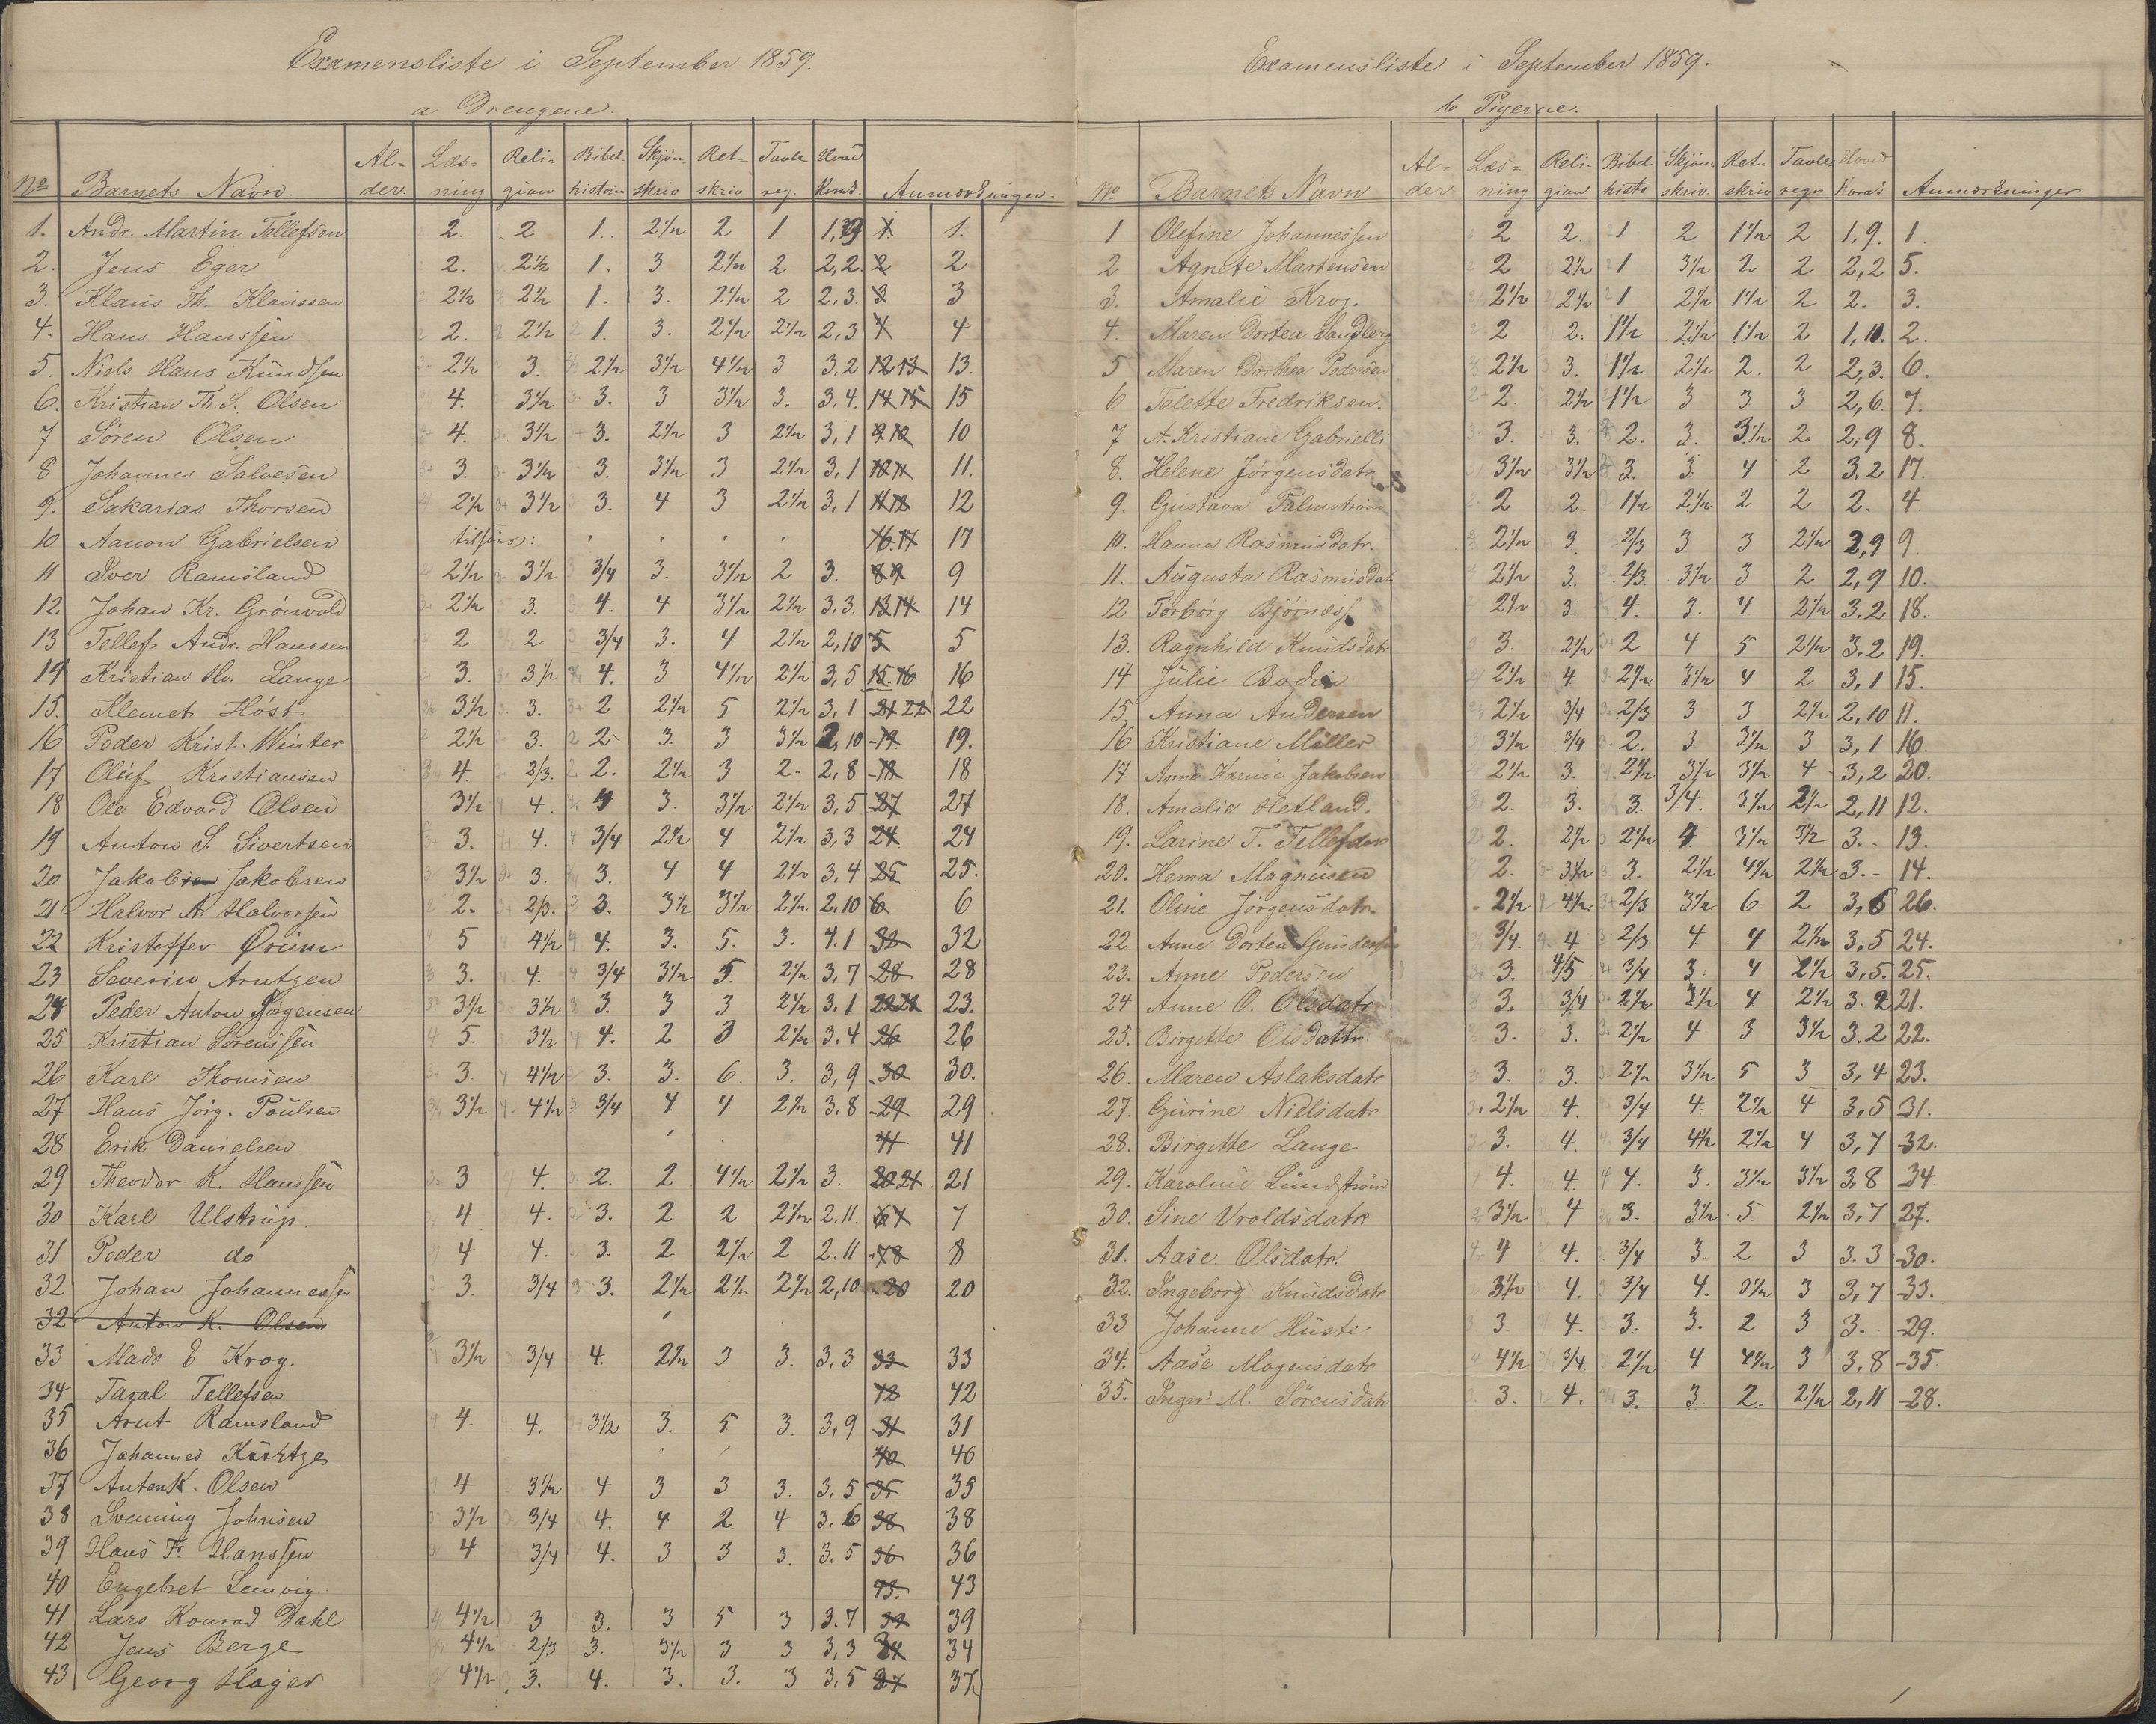 Examensliste i September 1859.
a Drengene.
No Barnets Navn. Al-der. Læs-ning Reli-gion Bibel historie Skjön skriv Ret skriv Tavle reg. Hoved Karak. Anmærkninger.
1. Andr. Martin Tellefsen 2. 2 1. 2½ 2 1 1,9 1. 1.
2. Jens Eger 2. 2½ 1. 3 2½ 2 2,2. 2. 2
3. Klaus Th. Klaussen 2½ 2½ 1. 3. 2½ 2 2,3. 3 3
4. Hans Hanssen 2. 2½ 1. 3. 2½ 2½ 2,3 4 4
5. Niels Haus Knudsen 2½ 3. 2½ 3½ 4½ 3 3,2 12 13 13.
6. Kristian Th. S. Olsen 4. 3½ 3. 3 3½ 3. 3,4. 14 15 15
7 Sören Olsen 4. 3½ 3. 2½ 3 2½ 3,1 9 10 10
8 Johannes Salvesen 3. 3½ 3. 3½ 3 2½ 3,1 10 11 11.
9. Sakarias Thorsen 2½ 3½ 3. 4 3 2½ 3,1 11 12 12
10 Aanon Gabrielsen tilsjös: 16. 17 17
11 Iver Ramsland 2½ 3½ 3/4 3. 3½ 2 3. 8 9 9
12 Johan Kr. Grönvold 2½ 3. 4. 4 3½ 2½ 3,3. 13 14 14
13 Tellef Andr. Hanssen 2 2 3/4 3. 4 2½ 2,10 5 5
14 Kristian Hv. Lange 3. 3½ 4. 3 4½ 2½ 3,5 15. 16 16
15. Klemet Höst 3½ 3. 2 2½ 5 2½ 3,1 21 22 22
16 Peder Krist. Winter 2½ 3. 2 3. 3 3½ 2,10 19. 19.
17 Oluf Kristiansen 4. 2/3. 2. 2½ 3 2. 2,8 18 18
18 Ole Edvard Olsen 3½ 4. 4 3. 3½ 2½ 3,5 27 27
19 Anton S. Sivertsen 3. 4. 3/4 2½ 4 2½ 3,3 24 24
20 Jakobsen Jakobsen 3½ 3. 3. 4 4 2½ 3,4 25 25.
21 Halvor A. Halvorsen 2. 2/3. 3. 3½ 3½ 2½ 2,10 6 6
22 Kristoffer Örum 5 4½ 4. 3. 5. 3. 4.1 32 32
23 Severin Arntzen 3. 4. 3/4 3½ 5. 2½ 3,7 28 28
24 Peder Anton Jörgensen 3½ 3½ 3. 3 3 2½ 3.1 22 23 23.
25 Kristian Sörenssen 5. 3½ 4. 2 3 2½ 3.4 26 26
26 Karl Thomsen 3. 4½ 3. 3. 6. 3. 3,9 30 30.
27 Hans Jörg. Poulsen 3½ 4½ 3/4 4 4 2½ 3.8 29 29
28 Erik Danielsen 41 41
29 Theodor K. Hanssen 3 4. 2. 2 4½ 2½ 3. 20 21 21
30 Karl Ulstrup. 4 4. 3. 2 2 2½ 2.11. 6 7 7
31 Peder do 4 4. 3. 2 2½ 2 2.11 7 8 8
32 Johan Johannessen 3. 3/4 3. 2½ 2½ 2½ 2,10 20 20
32 Anton K. Olsen
33 Mads E Krog. 3½ 3/4 4. 2½ 3 3. 3,3 33 33
34 Taral Tellefsen 42 42
35 Arnt Ramsland 4. 4. 3½ 3. 5 3. 3,9 31 31
36 Johannes 40 40
37 Anton K. Olsen 4 3½ 4 3 3 3. 3,5 35 35
38 Svenning Johnsen 3½ 3/4 4. 4 2 4 3.6 38 38
39 Hans Fr. Hanssen 4 3/4 4. 3 3 3. 3.5 36 36
40 Engebret Lemvig. 43. 43
41 Lars Konrad Dahl 4½ 3 3. 3 5 3 3.7 39 39
42 Jens Berge 4½ 2/3 3. 3½ 3 3 3,3 34 34
43 Georg Hager 4½ 3. 4. 3. 3. 3 3,5 37 37.
Examensliste i September 1859.
b Pigerne.
No Barnets Navn Al-der Læs-ning Reli-gion Bibel histo Skjön skriv. Ret-skriv Tavle regn Hoved Karak Anmærkninger
1 Olefine Johannessen 2 2. 1 2 1½ 2 1,9. 1.
2 Agnete Martensen 2 2½ 1 3½ 2 2 2,2 5.
3. Amalie Krog. 2½ 2½ 1 2½ 1½ 2 2. 3.
4. Maren Dortea Sandberg 2 2. 1½ 2½ 1½ 2 1,10. 2.
5 Maren Dorthea Pedersen 2½ 3. 1½ 2½ 2. 2 2,3. 6.
6 Talette Fredriksen. 2. 2½ 1½ 3 3 3 2,6. 7.
7 A. Kristiane Gabrielli 3. 3. 2. 3. 3½ 2. 2,9 8.
8. Helene Jörgensdatr. 3½ 3½ 3. 3. 4 2 3.2 17.
9. Gustava Palmström 2 2. 1½ 2½ 2 2 2. 4.
10. Hanna Rasmusdatr. 2½ 3 2/3 3 3 2½ 2,9 9.
11. Augusta Rasmusdat 2½ 3. 2/3 3½ 3 2 2,9 10.
12 Torborg Björness 2½ 3. 4. 3. 4 2½ 3.2 18.
13. Ragnhild Knudsdatr 3. 2½ 2 4 5 2½ 3.2 19.
14 Julie Bodin 2½ 4 2½ 3½ 4 2 3,1 15.
15. Anna Andersen 2½ 3/4 2/3 3 3 2½ 2,10 11.
16 Kristiane Möller 3½ 3/4 2. 3. 3½ 3 3,1 16.
17 Anne Karine Jakobsen 2½ 3. 2½ 3½ 3½ 4 3,2 20.
18. Amalie Hetland. 2. 3. 3. 3/4. 3½ 2½ 2,11 12.
19. Larine T. Tellefsdr 2. 2½ 2½ 4 3½ 3½ 3. 13.
20. Hema Magnusen 2. 3½ 3. 2½ 4½ 2½ 3. 14.
21. Oline Jörgensdatr. 2½ 4½ 2/3 3½ 6 2 3,6 26.
22. Anne Dortea Gundersen 3/4. 4 2/3 4 4 2½ 3,5 24.
23. Anne Pedersen 3. 4/5 3/4 3. 4 2½ 3,5. 25.
24 Anne O. Olsdatr 3. 3/4 2½ 3½ 4 2½ 3.2 21.
25. Birgitte datr 3. 3. 2½ 4 3 3½ 3.2 22.
26. Maren Aslaksdatr 3. 3. 2½ 3½ 5 3 3,4 23.
27. Gurine Nielsdatr 2½ 4. 3/4 4. 2½ 4 3,5 31.
28. Birgitte Lange 3. 4. 3/4 4½ 2½ 4 3,7 32.
29. Karoline Lundström 4. 4. 4. 3. 3½ 3½ 3,8 34.
30. Sine Vroldsdatr. 3½ 4 3. 3½ 5. 2½ 3,7 27.
31. Aase. Olsdatr. 4 4. 3/4 3. 2 3 3.3 30.
32. Ingeborg Knudsdatr 3½ 4. 3/4 4. 3½ 3 3,7 33.
33 Johanne Huste 3 4. 3. 3. 2 3 3. 29.
34. Aase Mogensdatr 4½ 3/4. 2½ 4 4½ 3 3,8 35
35. Inger M. Sörensdatr 3. 4. 3. 3. 2. 2½ 2,11 28.